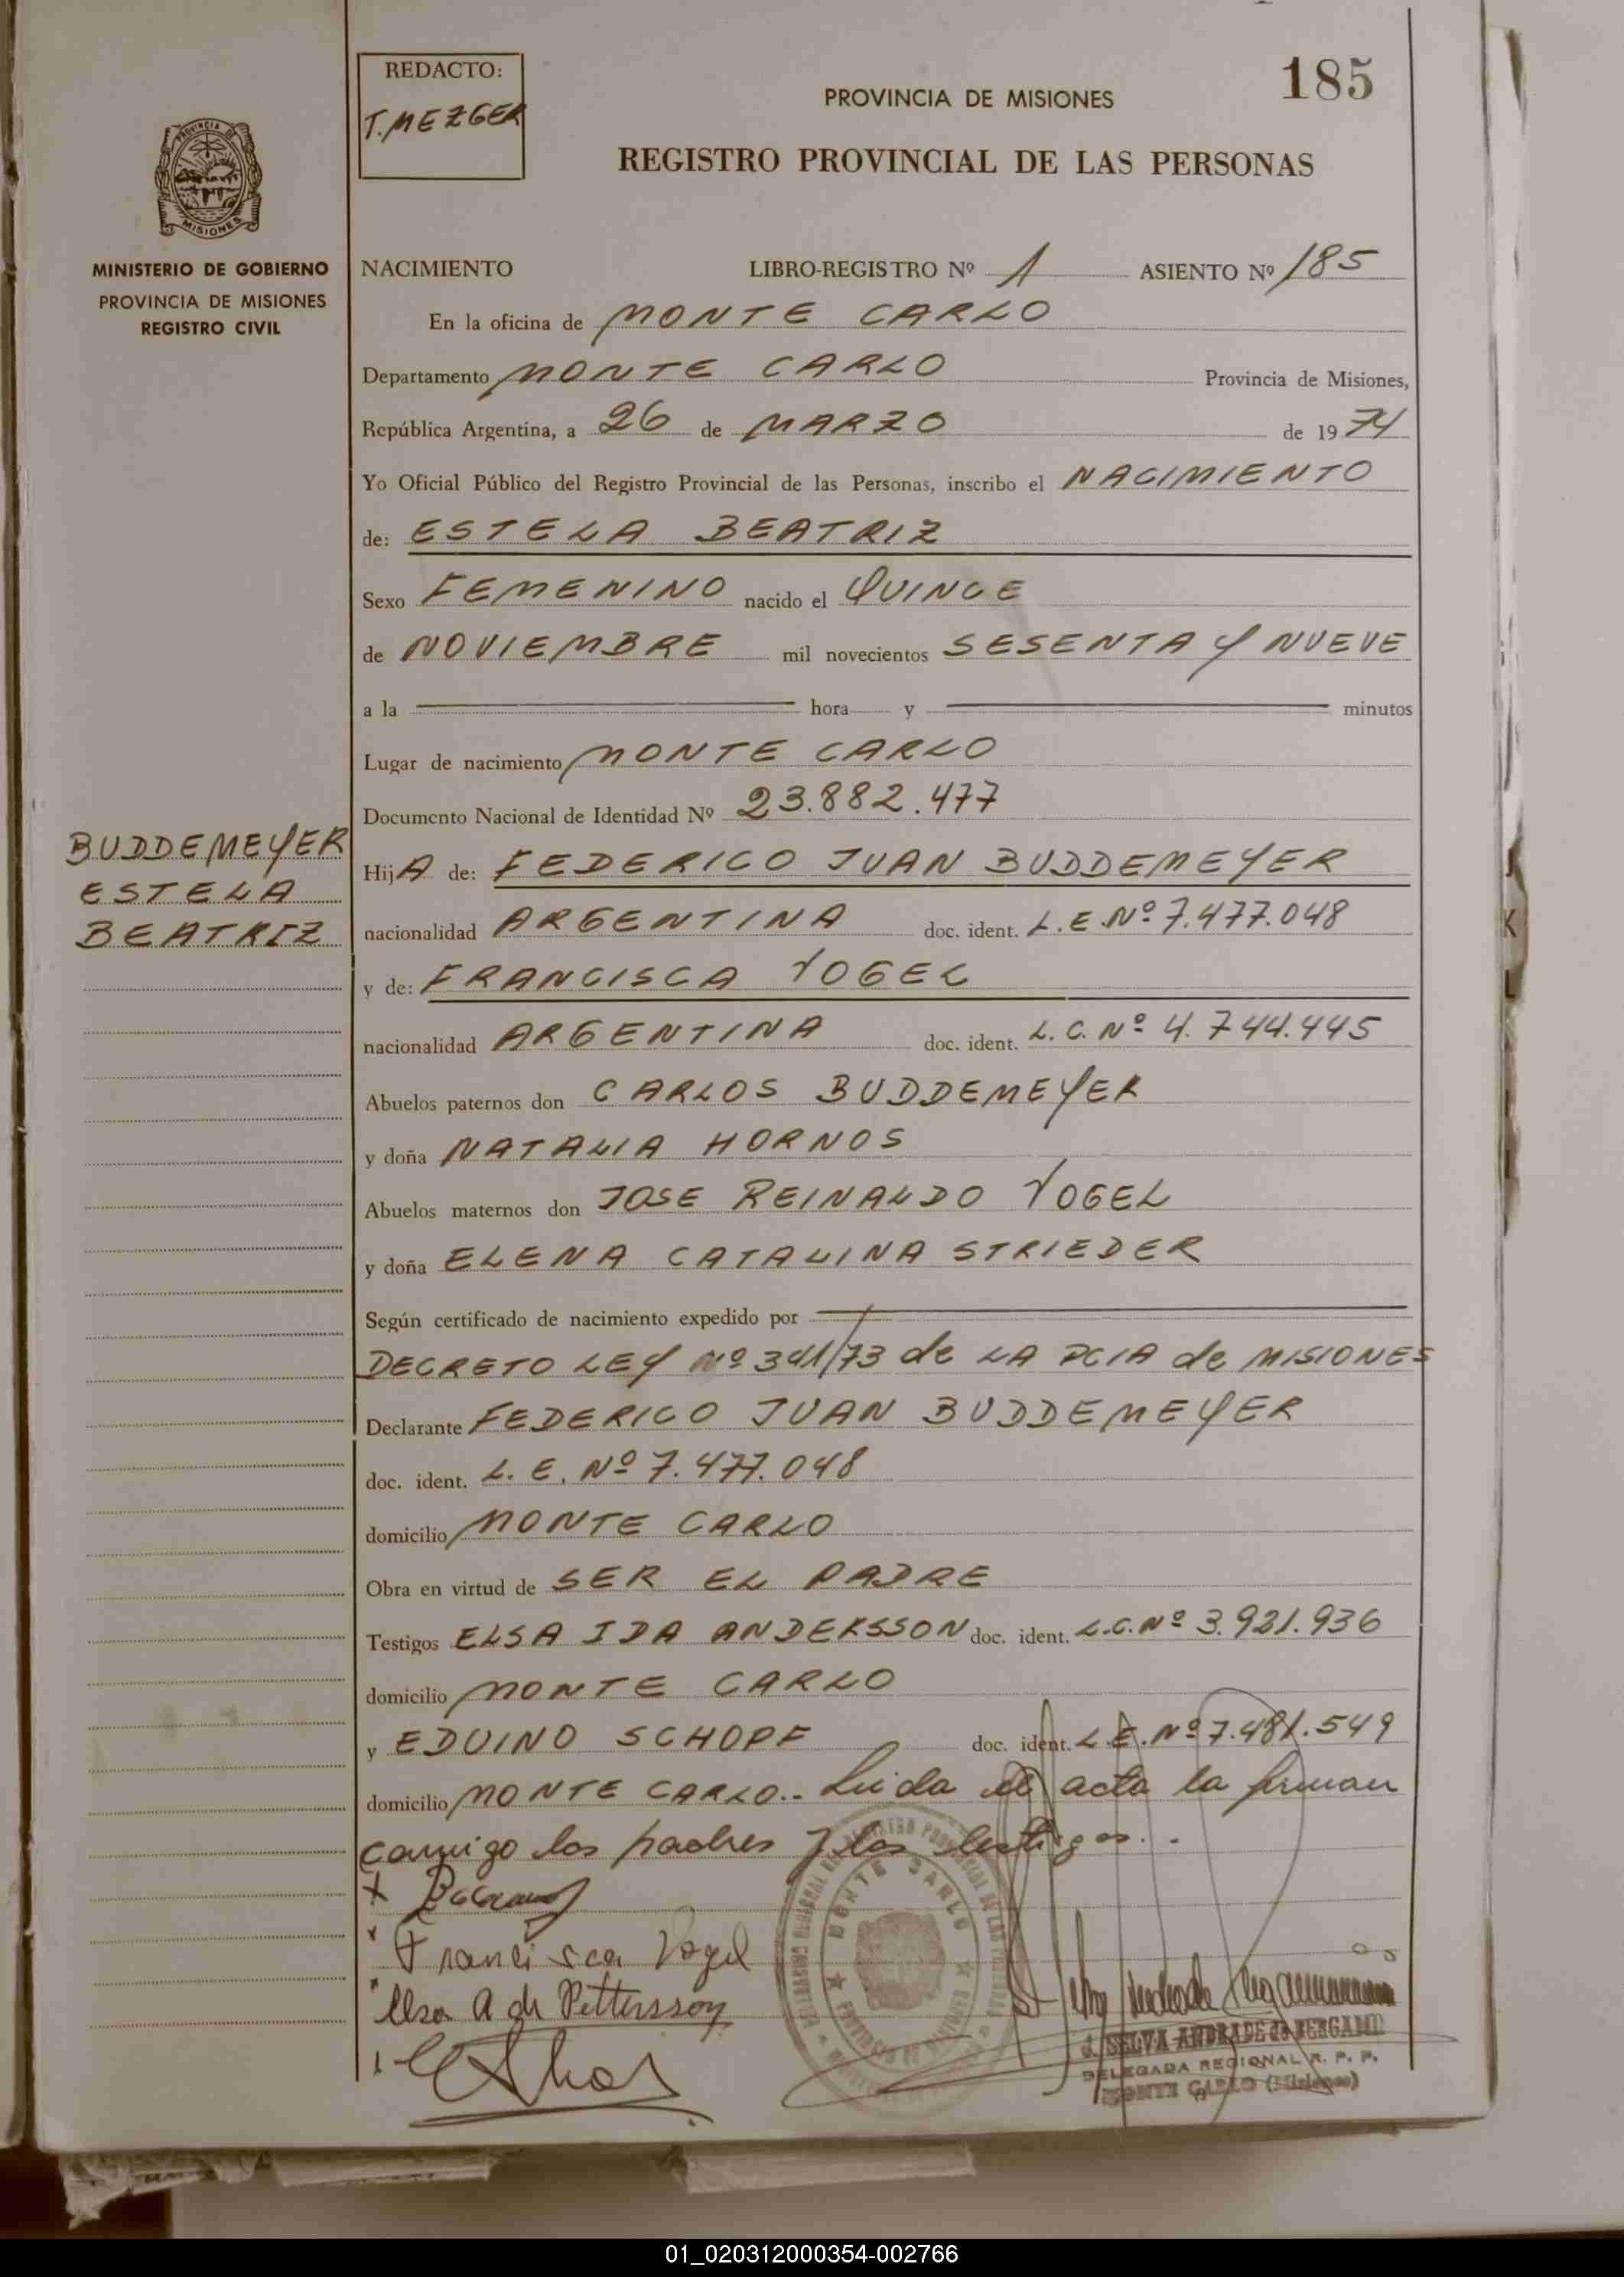 185
REDACTO:
T. MEZGER
PROVINCIA DE MISIONES
REGISTRO PROVINCIAL DE LAS PERSONAS
PROVINCIA DE
MISIONES
MINISTERIO DE GOBIERNO
PROVINCIA DE MISIONES
REGISTRO CIVIL
NACIMIENTO LIBRO-REGISTRO Nº 1 ASIENTO Nº 185
En la oficina de MONTE CARLO
Departamento MONTE CARLO Provincia de Misiones,
República Argentina, a 26 de MARZO de 1974
Yo Oficial Público del Registro Provincial de las Personas, inscribo el NACIMIENTO
de: ESTELA BEATRIZ
Sexo FEMENINO nacido el QUINCE
de NOVIEMBRE mil novecientos SESENTA Y NUEVE
a la hora y minutos
Lugar de nacimiento MONTE CARLO
Documento Nacional de Identidad Nº 23.882.477
BUDDEMEYER
ESTELA
BEATRIZ
HijA de: FEDERICO JUAN BUDDEMEYER
nacionalidad ARGENTINA doc. ident. L.E.Nº 7.477.048
y de: FRANCISCA VOGEL
nacionalidad ARGENTINA doc. ident. L.C.Nº 4.744.445
Abuelos paternos don CARLOS BUDDEMEYER
y doña NATALIA HORNOS
Abuelos maternos don JOSE REINALDO VOGEL
y doña ELENA CATALINA STRIEDER
Según certificado de nacimiento expedido por
DECRETO LEY Nº 341/73 de LA PCIA de MISIONES
Declarante FEDERICO JUAN BUDDEMEYER
doc. ident. L.E. Nº 7.477.048
domicilio MONTE CARLO
Obra en virtud de SER EL PADRE
Testigos ELSA IDA ANDERSSON doc. ident. L.C.Nº 3.921.936
domicilio MONTE CARLO
y EDUINO SCHOPF doc. ident. L.E.Nº 7.481.549
domicilio MONTE CARLO.- Leida el acta la firman
conmigo los padres y los testigos.-
Francisca Vogel
Elsa A de Pettersson
MONTE CARLO
SELVA ANDRADE de BERGAMI
DELEGADA REGIONAL R. P. P.
MONTE CARLO (Misiones)
J
K
L
01_020312000354-002766